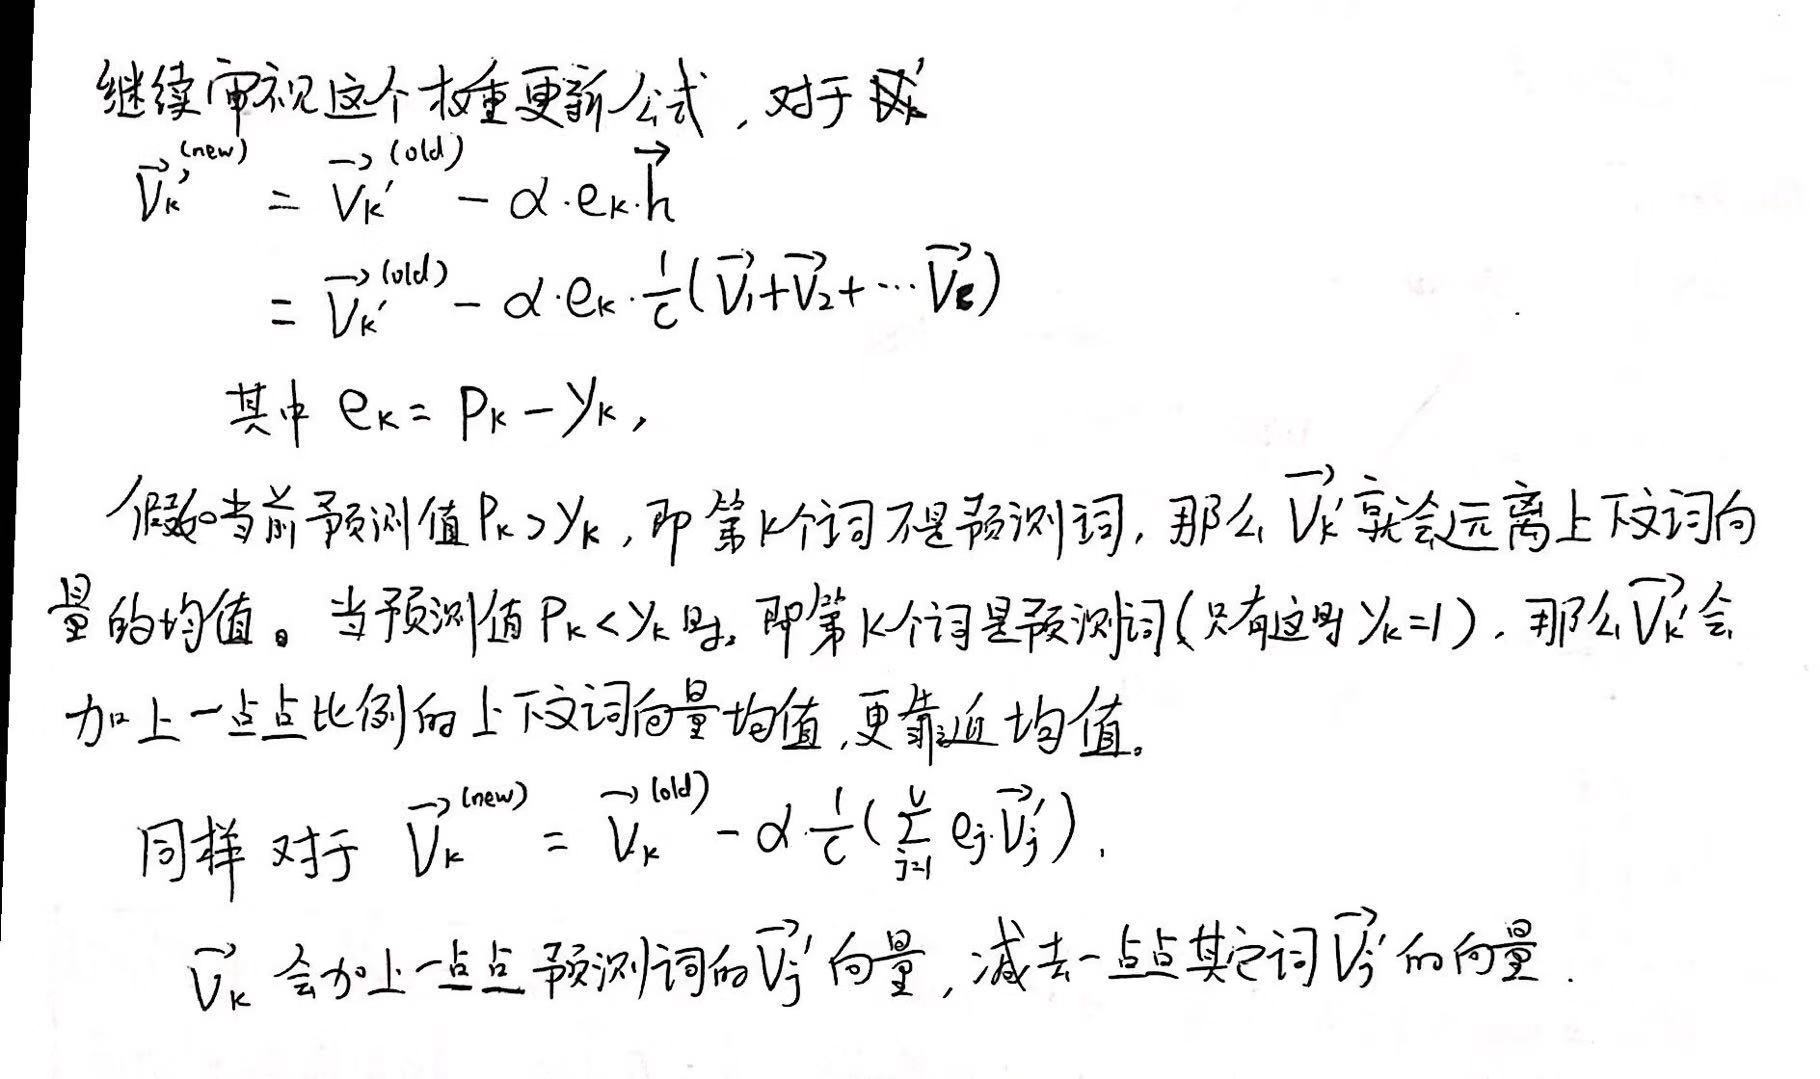 继续审视这个权重更新公式，对于
V⃗k′^(new) = V⃗k′^(old) - α·ek·h⃗
= V⃗k′^(old) - α·ek·1/c(V⃗1+V⃗2+…V⃗c)
其中 ek = Pk - yk，
假如当前预测值Pk>yk，即第k个词不是预测词，那么V⃗k′就会远离上下文词向
量的均值。当预测值Pk<yk时，即第k个词是预测词(只有这时yk=1)，那么V⃗k′会
加上一点点比例的上下文词向量均值，更靠近均值。
同样对于 V⃗k^(new) = V⃗k^(old) - α·1/c(∑_{j=1}^{V} ej·V⃗j′)．
V⃗k 会加上一点点预测词的V⃗j′向量，减去一点点其它词V⃗j′的向量．